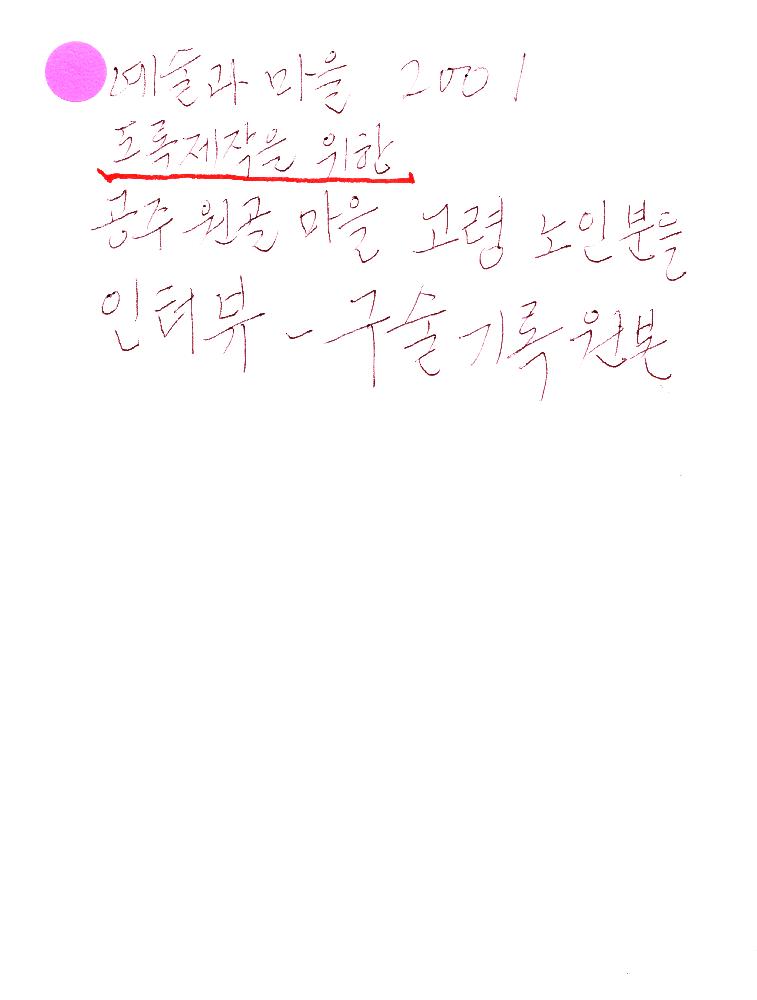 예술과 마을 2001
도록제작을 위한
공주 원골 마을 고령 노인분들
인터뷰 - 구술기록 원본